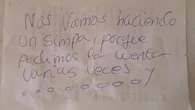 Nos vamos haciendo
un simpa, porque
pedimos la cuenta
varias veces y